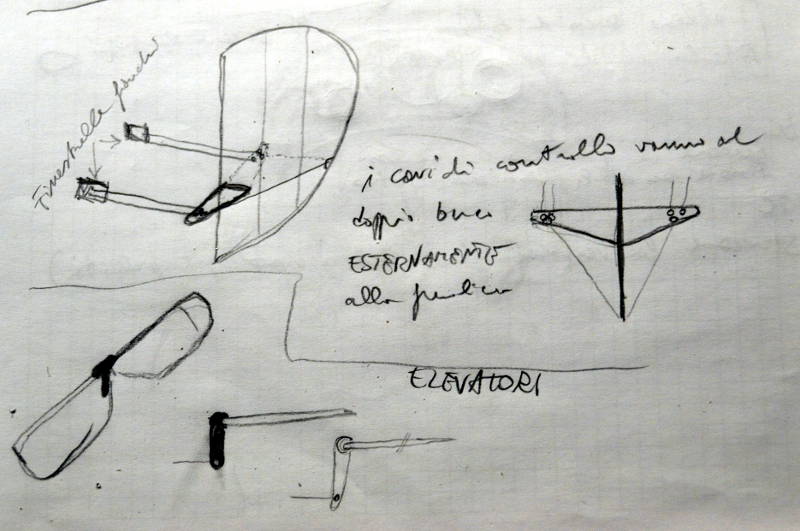 Finestrelle fondo
i cavi di controllo vanno al
doppio buco
ESTERNAMENTE
alla
ELEVATORI